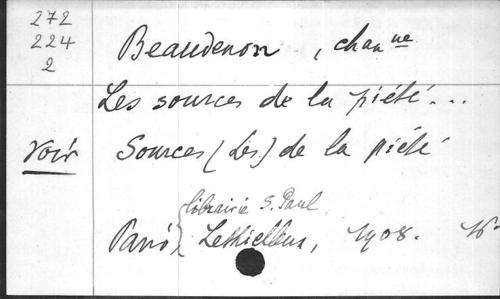 272
224
2
Beaudenon, chan ne
Les sources de la piété...
Voir Sources (Les) de la piété
librairie S. Paul
Paris { Lethielleux, 1908. 16°